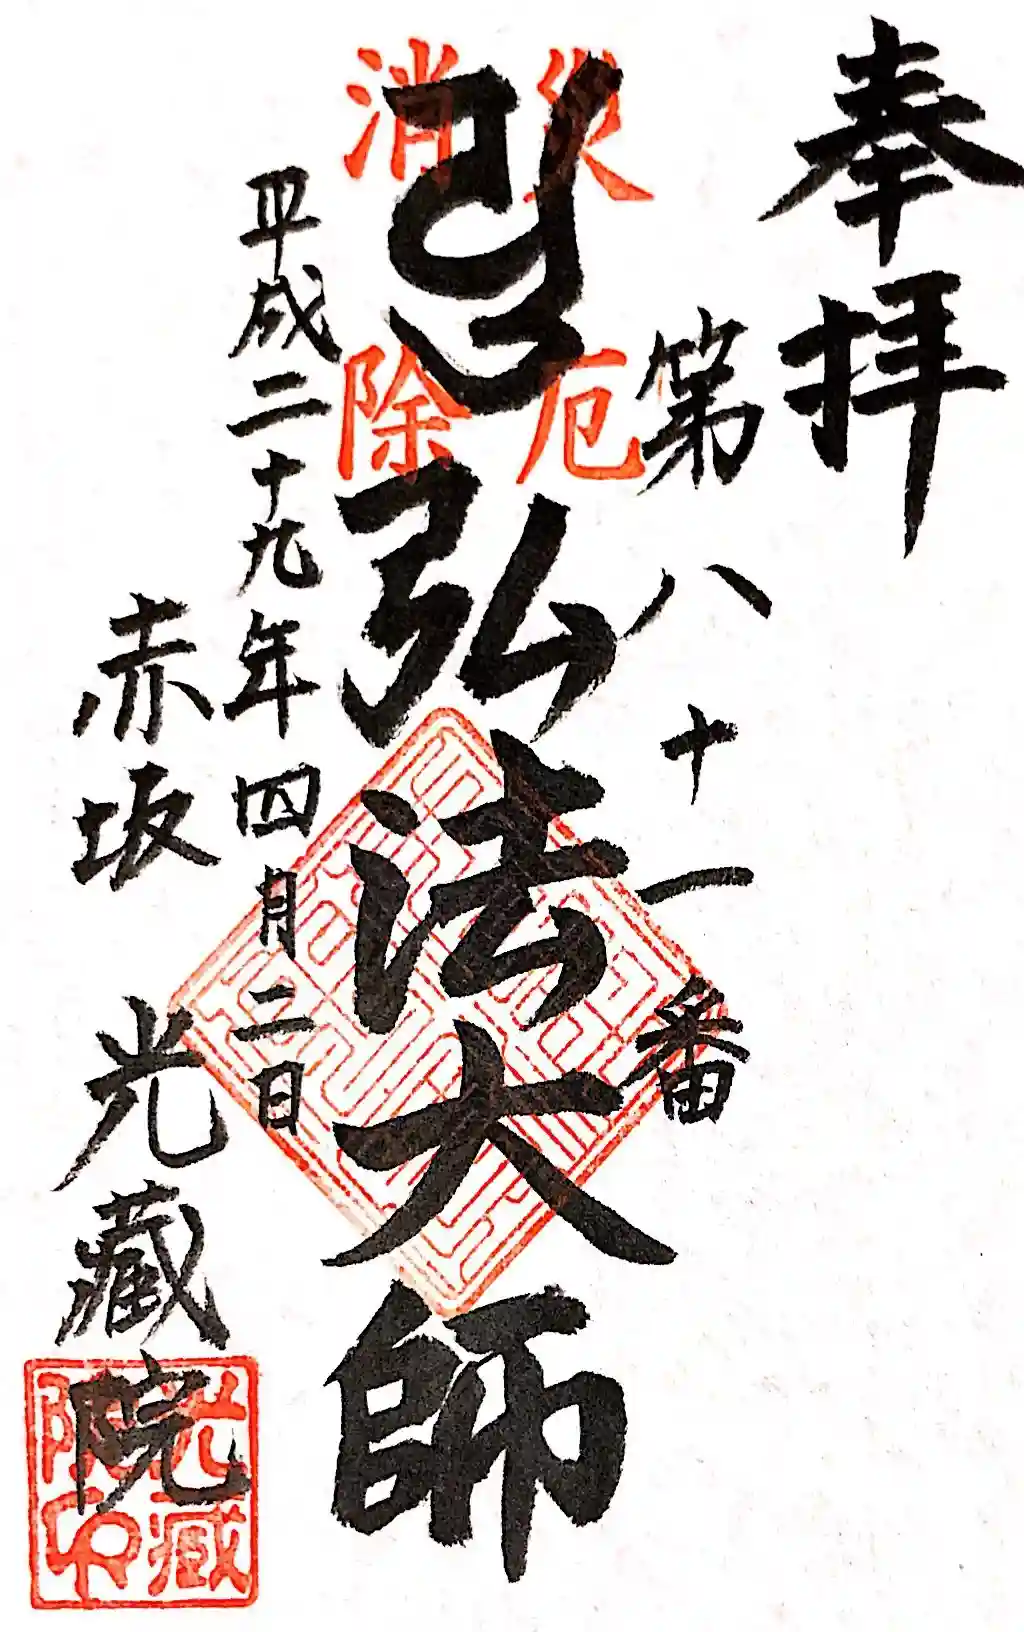 奉拝
第八十一番
災厄
消除
弘法大師
平成二十九年四月二日
赤坂 光蔵院
光蔵
院印